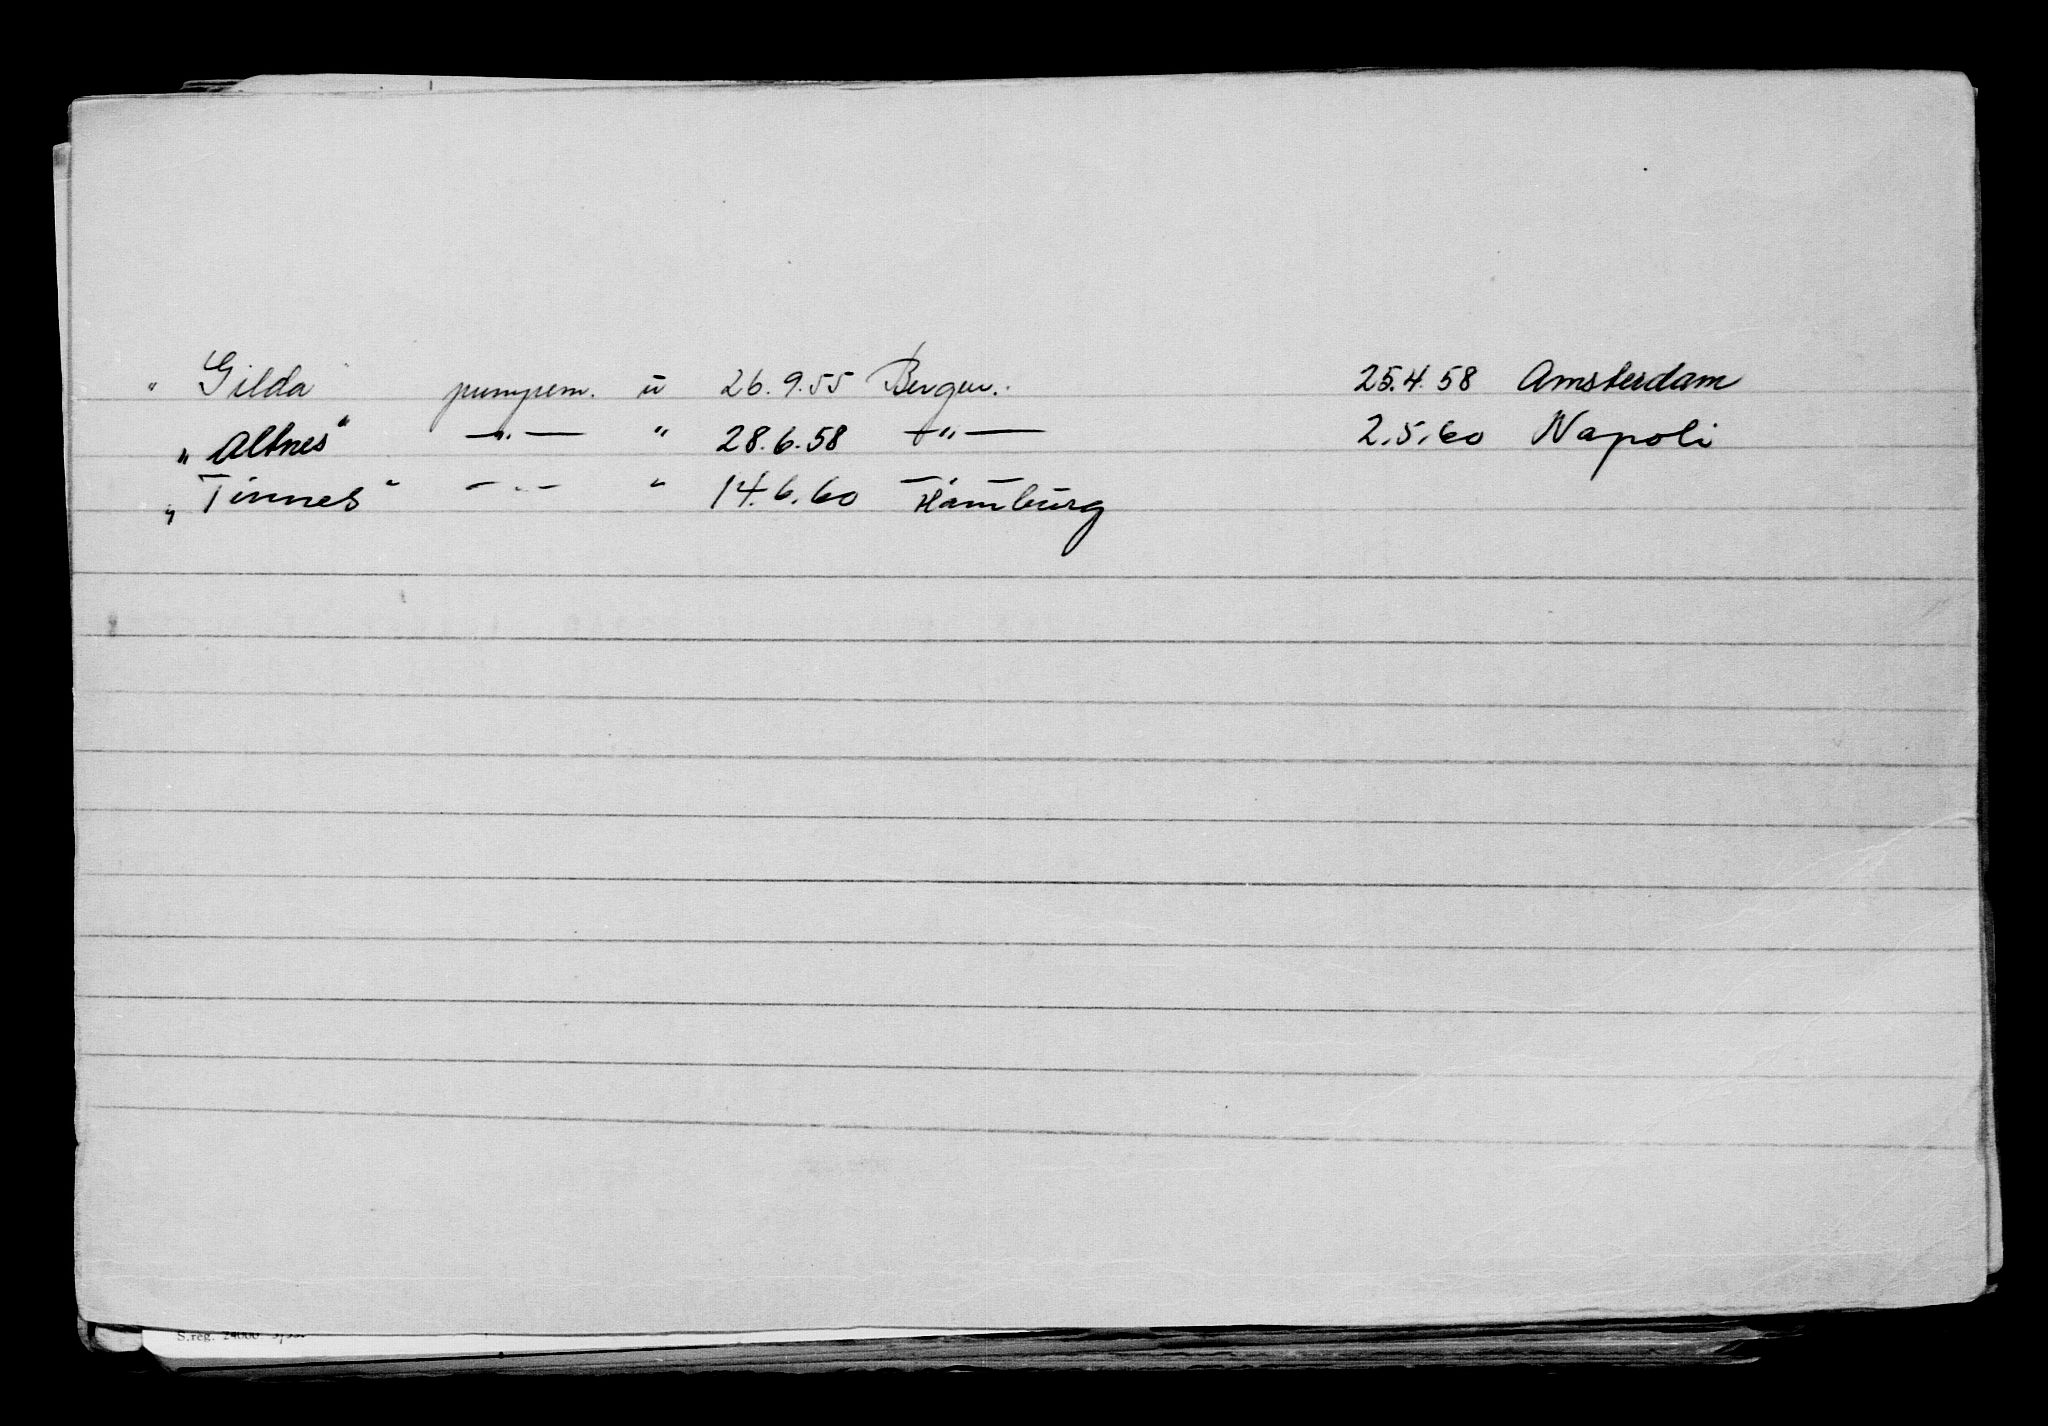 " Gilda " pumpem. u 26.9.55 Bergen. 25.4.58 Amsterdam
" Altnes " —"— " 28.6.58 —"— 2.5.60 Napoli
" Tinnes " —"— " 14.6.60 Hamburg
S.reg. 24000